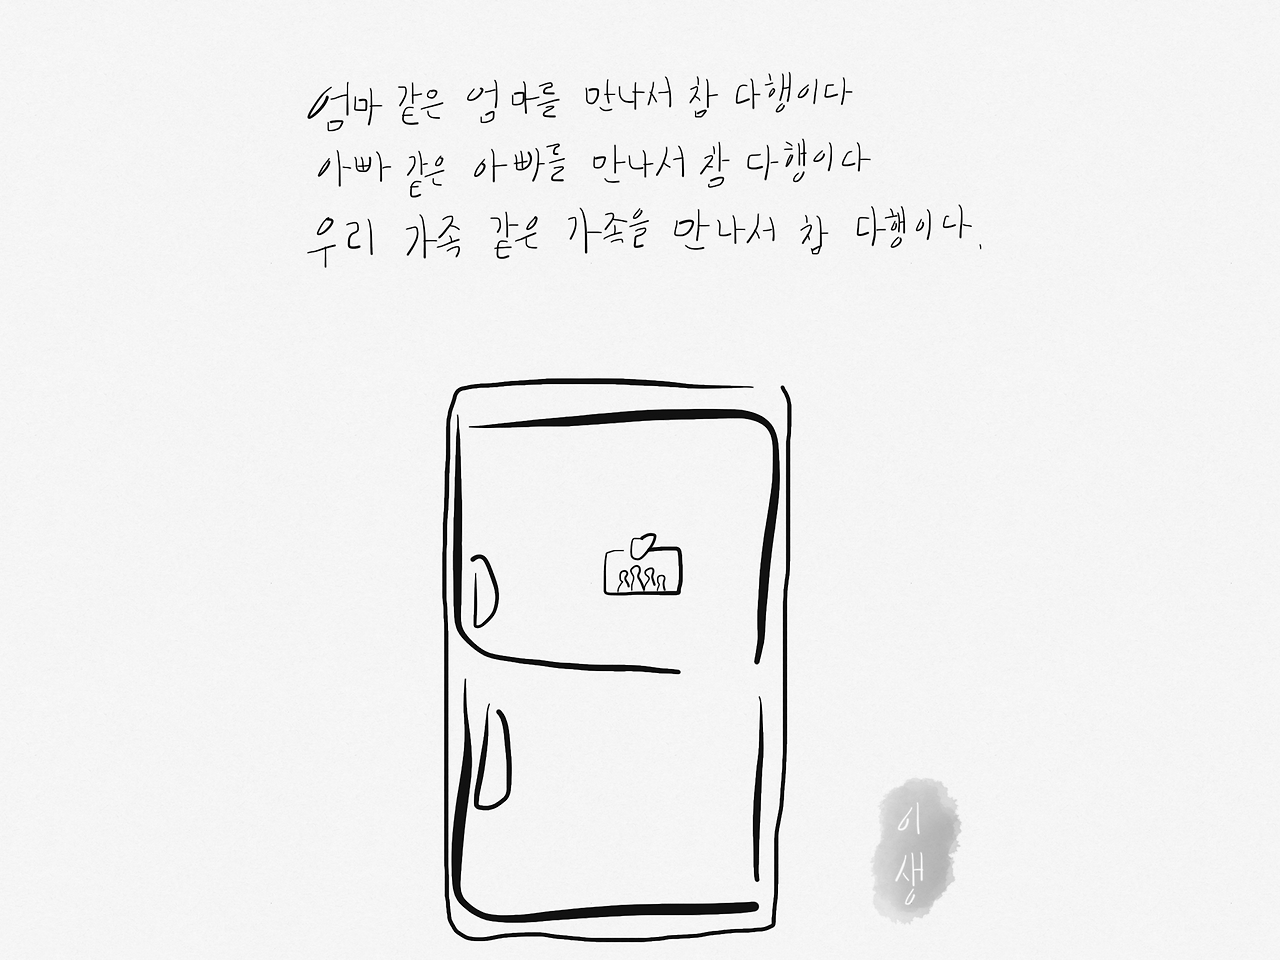 엄마 같은 엄마를 만나서 참 다행이다
아빠 같은 아빠를 만나서 참 다행이다
우리 가족 같은 가족을 만나서 참 다행이다.
이
생